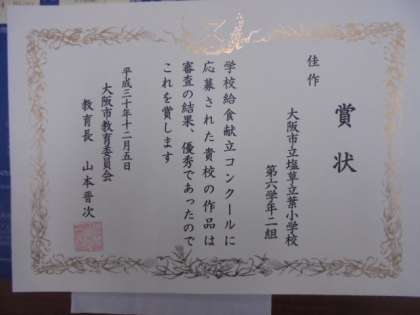 賞状
佳作
大阪市立塩草立葉小学校
第六学年二組
学校給食献立コンクールに
応募された貴校の作品は
審査の結果、優秀であったので
これを賞します
平成三十年十二月五日
大阪市教育委員会
教育長 山本晋次